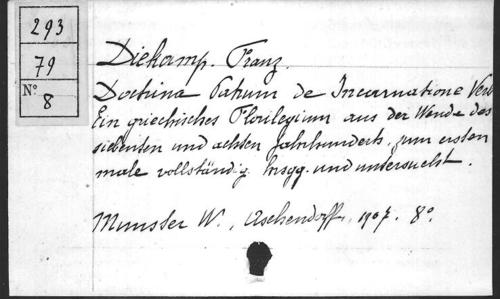 293
79
N° 8
Diekamp. Franz.
Doctrina Patrum de Incarnatione Verbi
Ein griechisches Florilegium aus der Wende des
siebenten und achten Jahrhunderts, zum ersten
male vollständig hrsgg. und untersucht.
Munster W., Aschendorff, 1907. 8°.